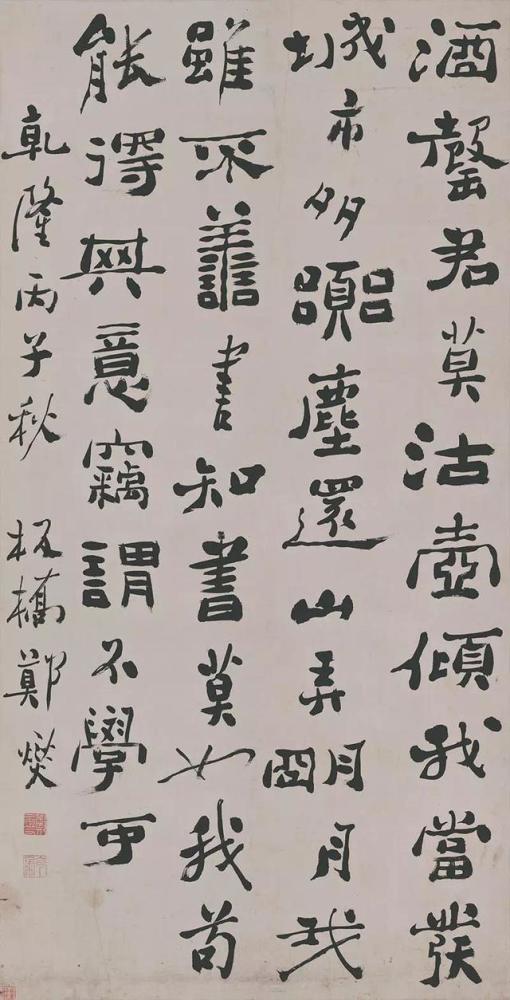 酒罄君莫沽壺傾我當發
城市多囂塵還山弄明月我
雖不譱書知書莫如我苟
能得其意竊謂不學可
乾隆丙子秋 板橋鄭燮